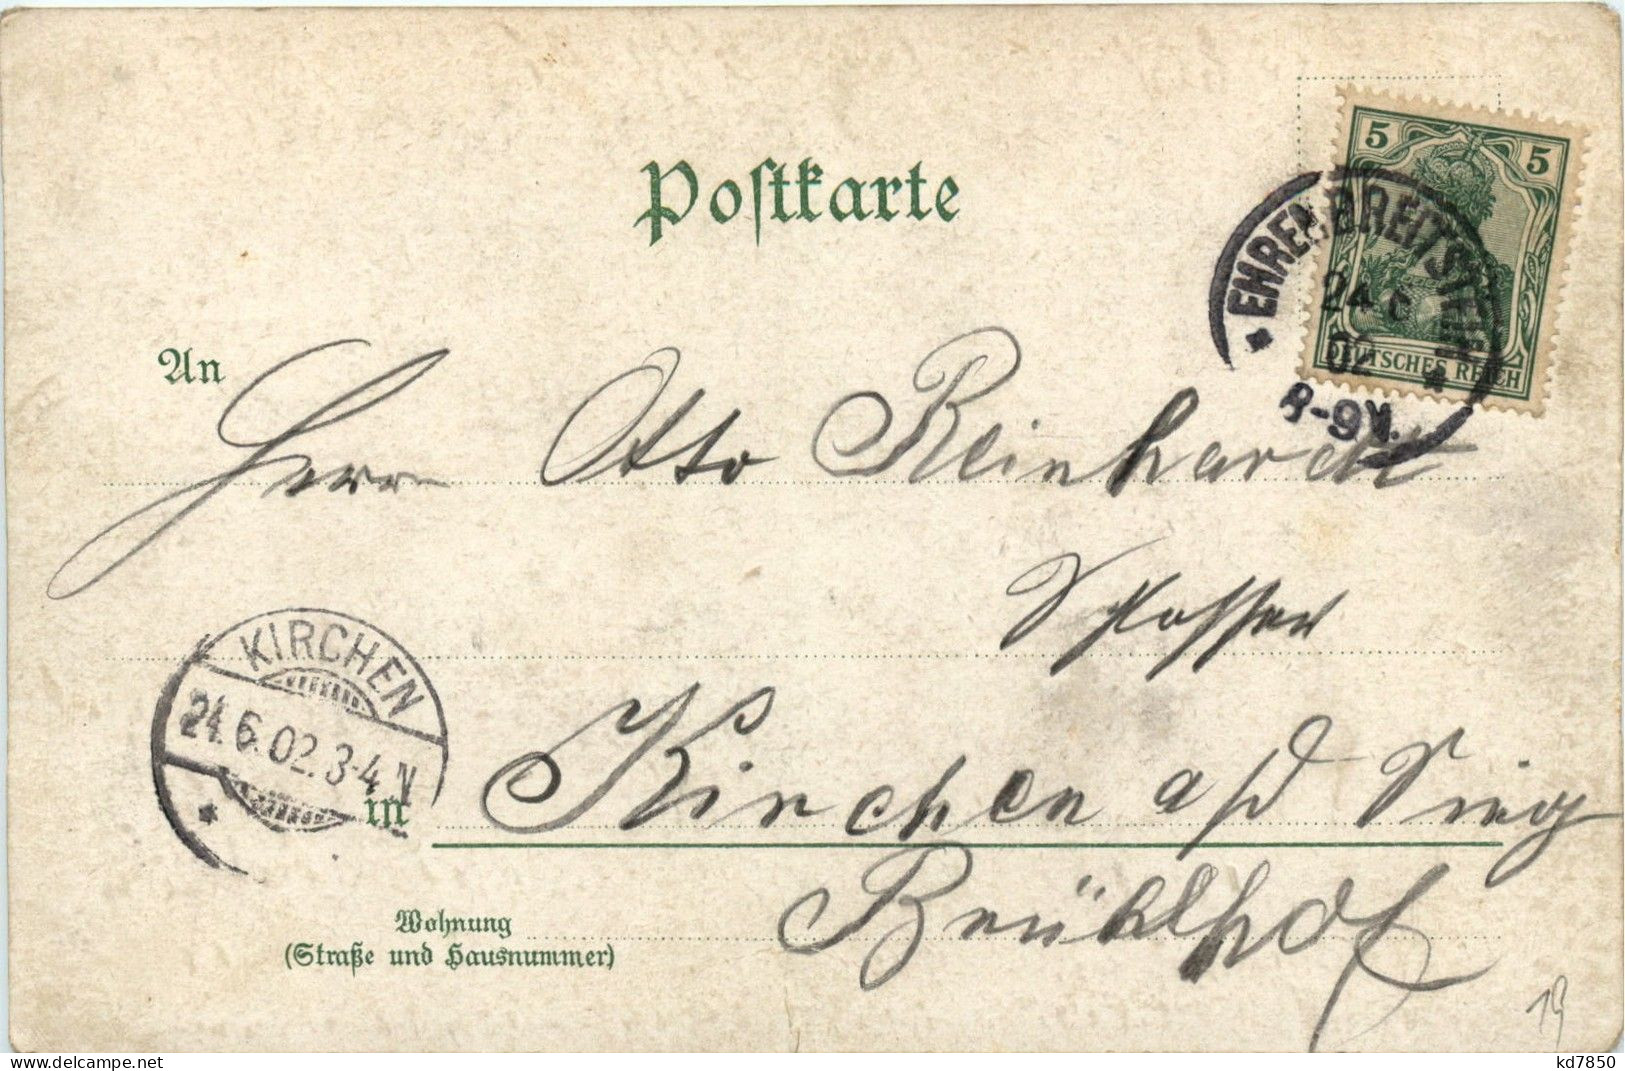 Postkarte
5 5
EHRENBREITSTEIN
24 6
02
8-9V.
DEUTSCHES REICH
An
Herrn Otto Reinhardt
Schlosser
KIRCHEN
24.6.02.3-4 N
in Kirchen a/d Sieg
Wohnung
(Straße und Hausnummer)
19
www.delcampe.net
kd7850